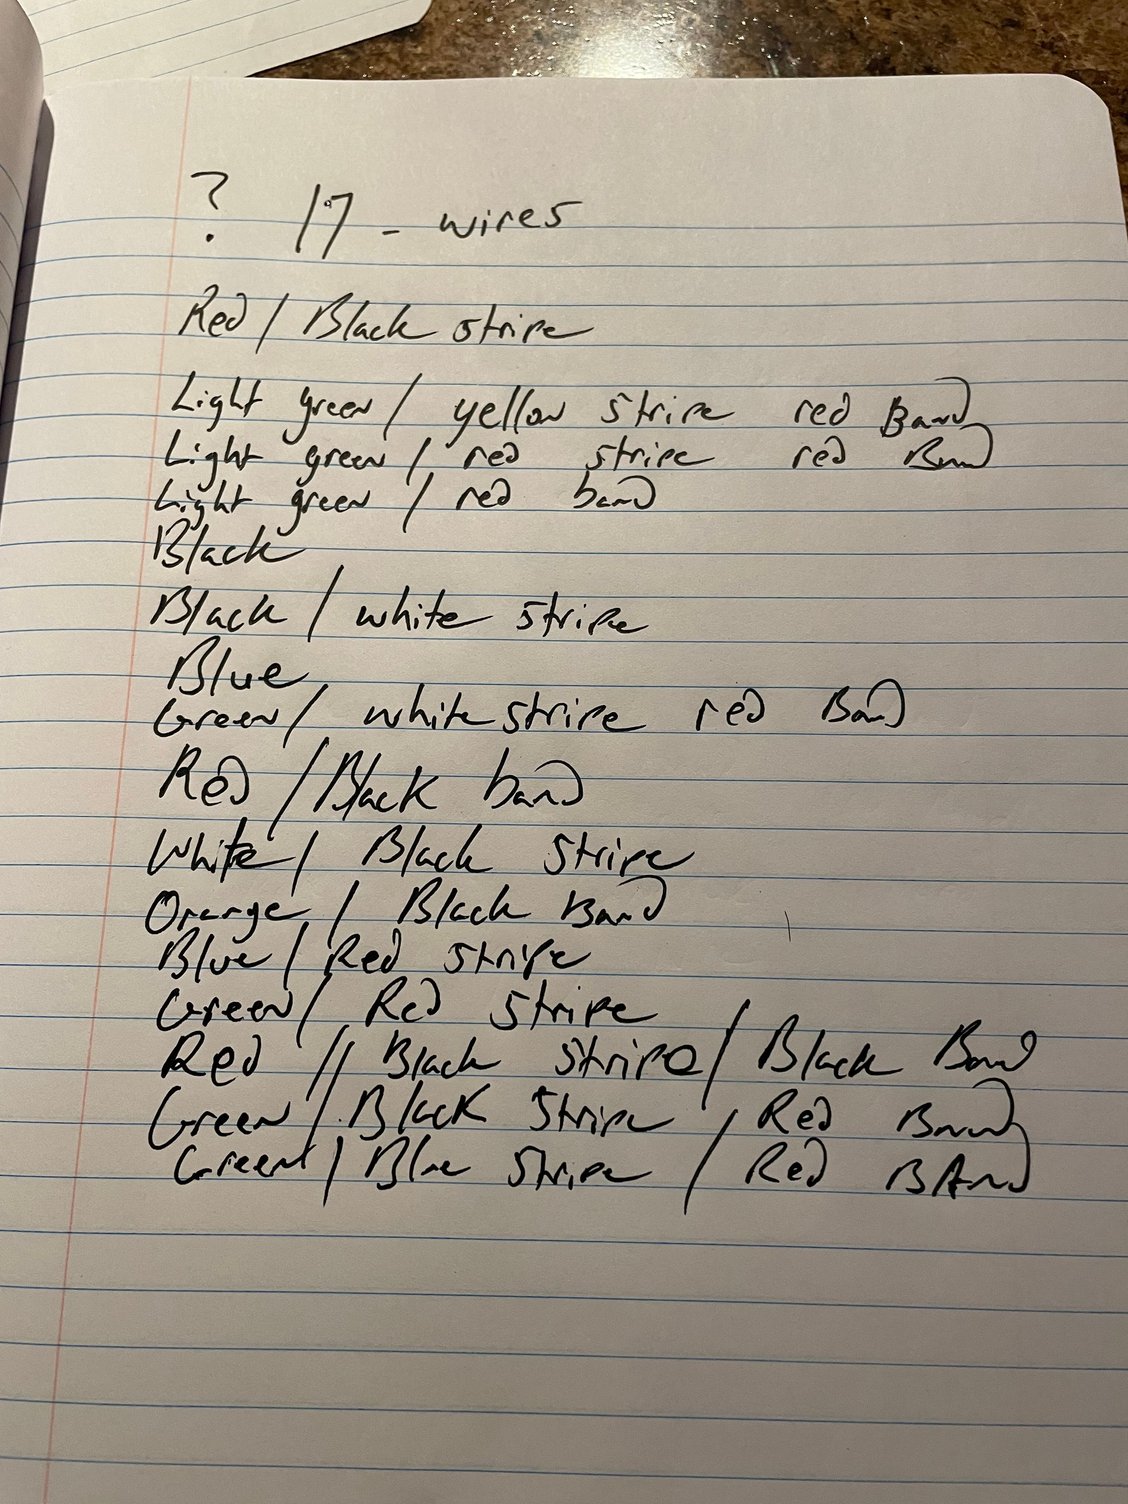 ? 17 - wires
Red / Black stripe
Light green / yellow stripe red Band
Light green / red stripe red Band
Light green / red band
Black
Black / white stripe
Blue
Green / white stripe red Band
Red / Black band
White / Black stripe
Orange / Black Band
Blue / Red stripe
Green / Red stripe
Red // Black stripe / Black Band
Green / Black stripe / Red Band
Green / Blue stripe / Red BAnd